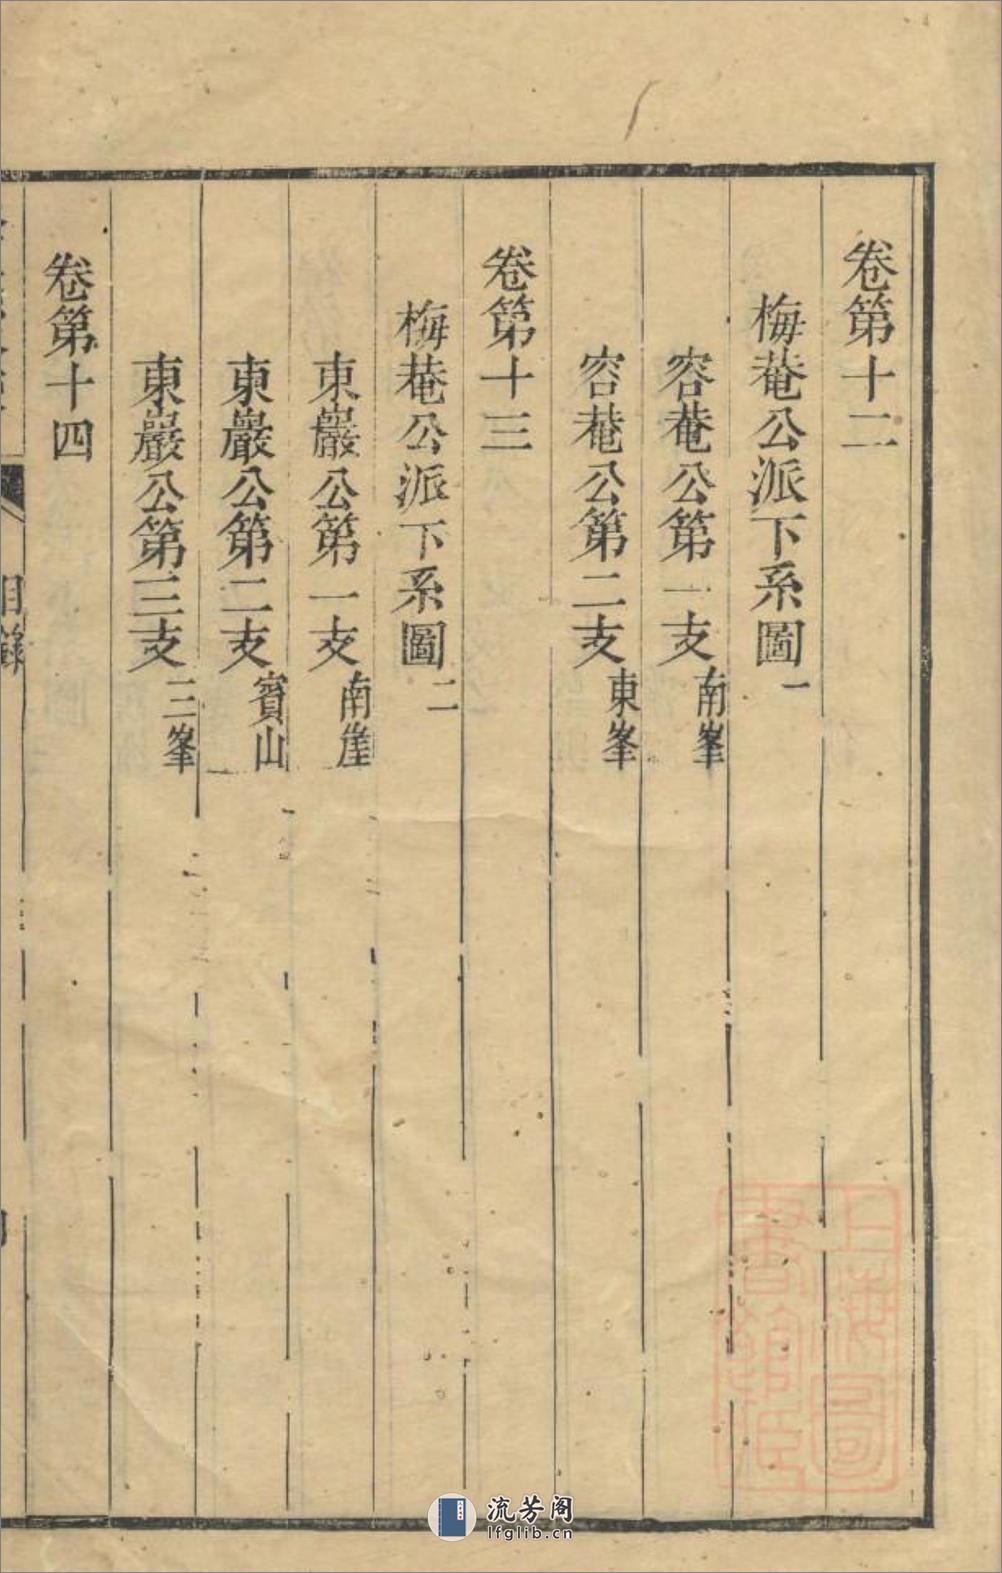 卷第十二
梅菴公派下系圖一
容菴公第一支南峯
容菴公第二支東峯
卷第十三
梅菴公派下系圖二
東巖公第一支南崖
東巖公第二支賓山
東巖公第三支三峯
卷第十四
目錄
上海圖書館藏
流芳阁
lfglib.cn